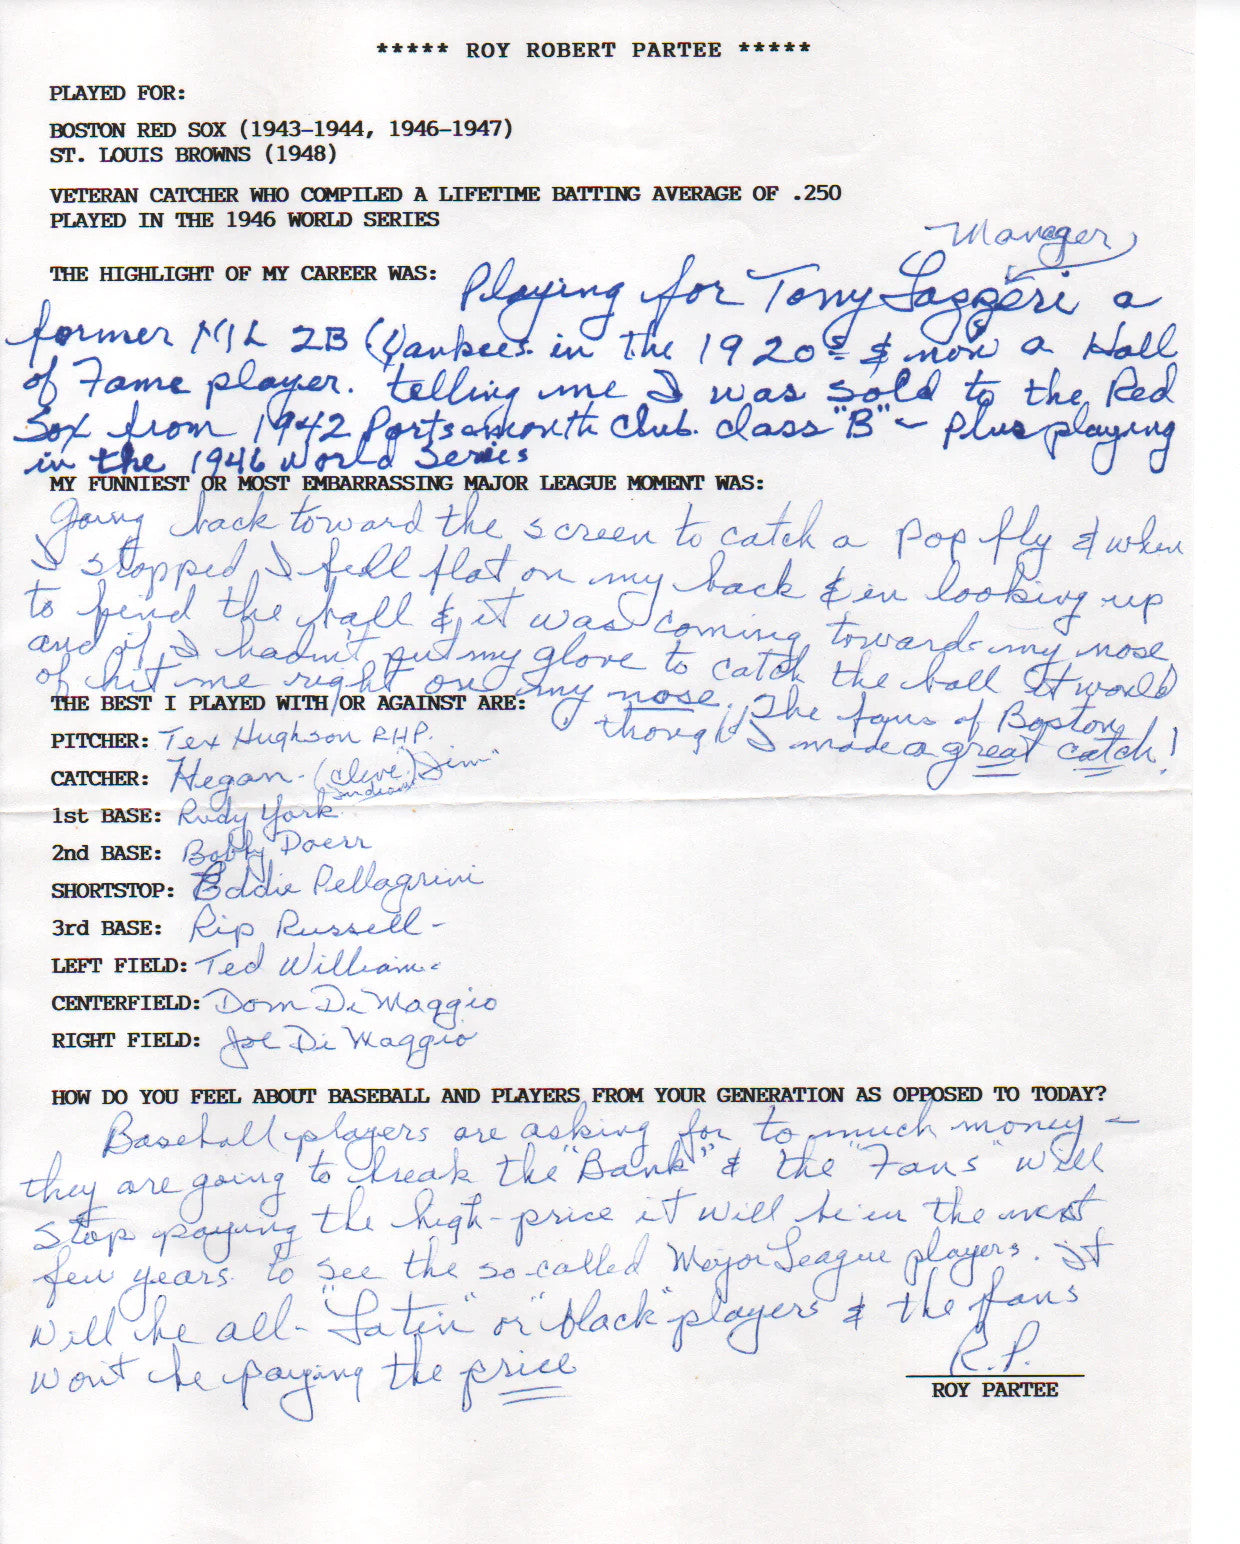 ***** ROY ROBERT PARTEE *****
PLAYED FOR:
BOSTON RED SOX (1943-1944, 1946-1947)
ST. LOUIS BROWNS (1948)
VETERAN CATCHER WHO COMPILED A LIFETIME BATTING AVERAGE OF .250
PLAYED IN THE 1946 WORLD SERIES
Manager
THE HIGHLIGHT OF MY CAREER WAS: Playing for Tony Lazzeri a
former 2B (Yankees in the 1920s & now a Hall
of Fame player. telling me I was sold to the Red
Sox from 1942 Portsmonth Club. class "B" - Plus playing
in the 1946 World Series
MY FUNNIEST OR MOST EMBARRASSING MAJOR LEAGUE MOMENT WAS:
Going back toward the screen to catch a pop fly & when
I stopped I fell flat on my back & in looking up
to find the ball & it was coming toward my nose
and if I hadn't put my glove to catch the ball it would
of hit me right on my nose. The fans of Boston
THE BEST I PLAYED WITH/OR AGAINST ARE:
thought I made a great catch!
PITCHER: Tex Hughson RHP.
CATCHER: Hegan - (Cleve. Indians) "Jim"
1st BASE: Rudy York
2nd BASE: Bobby Doerr
SHORTSTOP: Eddie Pellagrini
3rd BASE: Rip Russell -
LEFT FIELD: Ted Williams
CENTERFIELD: Dom DiMaggio
RIGHT FIELD: Joe DiMaggio
HOW DO YOU FEEL ABOUT BASEBALL AND PLAYERS FROM YOUR GENERATION AS OPPOSED TO TODAY?
Baseball players are asking for to much money -
they are going to break the "Bank" & the "Fans" will
stop paying the high-price it will be in the next
few years to see the so-called Major League players. It
will be all - "Latin" or "black" players & the fans
won't be paying the price
R.P.
ROY PARTEE